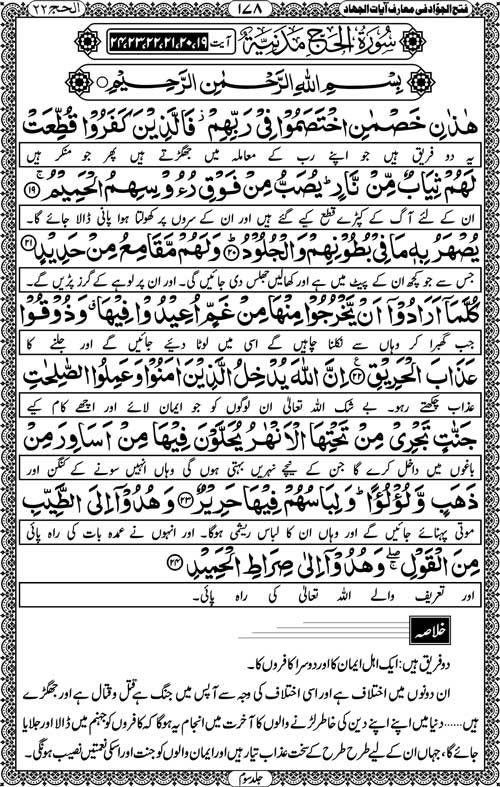 فتح الجوّاد فی معارف آیات الجہاد ۱۷۸ الحج ۲۲
سُوْرَةُ الْحَجِّ مَدَنِیَّةٌ آیت ۱۹،۲۰،۲۱،۲۲،۲۳،۲۴
بِسْمِ اللّٰهِ الرَّحْمٰنِ الرَّحِیْمِ
هٰذٰنِ خَصْمٰنِ اخْتَصَمُوْا فِیْ رَبِّهِمْ ۫ فَالَّذِیْنَ كَفَرُوْا قُطِّعَتْ
یہ دو فریق ہیں جو اپنے رب کے معاملہ میں جھگڑتے ہیں پھر جو منکر ہیں
لَهُمْ ثِیَابٌ مِّنْ نَّارٍ ؕ یُصَبُّ مِنْ فَوْقِ رُءُوْسِهِمُ الْحَمِیْمُ ۚ ﴿۱۹﴾
ان کے لئے آگ کے کپڑے قطع کیے گئے ہیں اور ان کے سروں پر کھولتا ہوا پانی ڈالا جائے گا۔
یُصْهَرُ بِهٖ مَا فِیْ بُطُوْنِهِمْ وَالْجُلُوْدُ ؕ ﴿۲۰﴾ وَلَهُمْ مَّقَامِعُ مِنْ حَدِیْدٍ ﴿۲۱﴾
جس سے جو کچھ ان کے پیٹ میں ہے اور کھالیں جھلس دی جائیں گی۔ اور ان پر لوہے کے گرز پڑیں گے۔
كُلَّمَاۤ اَرَادُوْۤا اَنْ یَّخْرُجُوْا مِنْهَا مِنْ غَمٍّ اُعِیْدُوْا فِیْهَا ۗ وَذُوْقُوْا
جب گھبرا کر وہاں سے نکلنا چاہیں گے اسی میں لوٹا دیئے جائیں گے اور جلنے کا
عَذَابَ الْحَرِیْقِ ﴿۲۲﴾ اِنَّ اللّٰهَ یُدْخِلُ الَّذِیْنَ اٰمَنُوْا وَعَمِلُوا الصّٰلِحٰتِ
عذاب چکھتے رہو۔ بے شک اللہ تعالیٰ ان لوگوں کو جو ایمان لائے اور اچھے کام کیے
جَنّٰتٍ تَجْرِیْ مِنْ تَحْتِهَا الْاَنْهٰرُ یُحَلَّوْنَ فِیْهَا مِنْ اَسَاوِرَ مِنْ
باغوں میں داخل کرے گا جن کے نیچے نہریں بہتی ہوں گی وہاں انہیں سونے کے کنگن اور
ذَهَبٍ وَّلُؤْلُؤًا ؕ وَلِبَاسُهُمْ فِیْهَا حَرِیْرٌ ﴿۲۳﴾ وَهُدُوْۤا اِلَی الطَّیِّبِ
موتی پہنائے جائیں گے اور وہاں ان کا لباس ریشمی ہوگا۔ اور انہوں نے عمدہ بات کی راہ پائی
مِنَ الْقَوْلِ ۖۚ وَهُدُوْۤا اِلٰی صِرَاطِ الْحَمِیْدِ ﴿۲۴﴾
اور تعریف والے اللہ تعالیٰ کی راہ پائی۔
خلاصہ
دو فریق ہیں: ایک اہل ایمان کا اور دوسرا کافروں کا۔
ان دونوں میں اختلاف ہے اور اسی اختلاف کی وجہ سے آپس میں جنگ ہے قتل و قتال ہے اور جھگڑے
ہیں...... دنیا میں اپنے اپنے دین کی خاطر لڑنے والوں کا آخرت میں انجام یہ ہوگا کہ کافروں کو جہنم میں ڈالا اور جلایا
جائے گا، جہاں ان کے لیے طرح طرح کے سخت عذاب تیار ہیں اور ایمان والوں کو جنت اور اسکی نعمتیں نصیب ہونگی۔
جلد سوم